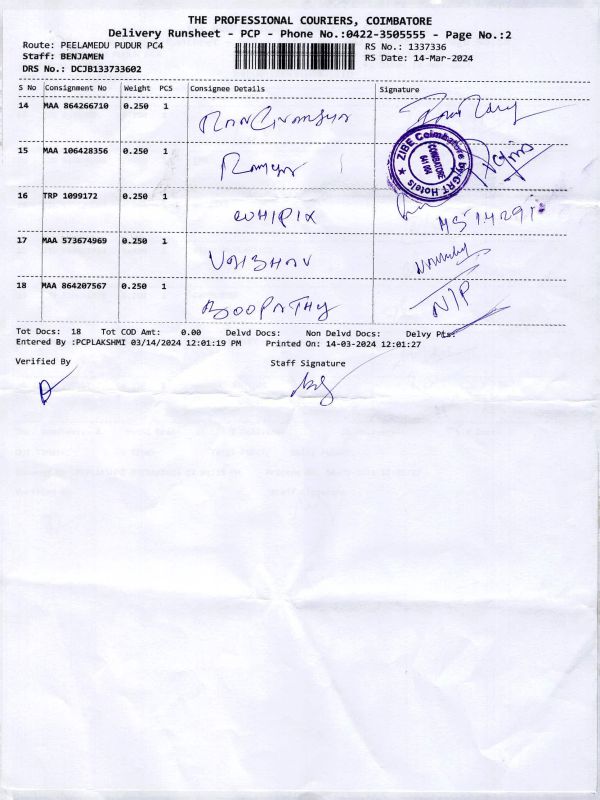 THE PROFESSIONAL COURIERS, COIMBATORE
Delivery Runsheet - PCP - Phone No.:0422-3505555 - Page No.:2
Route: PEELAMEDU PUDUR PC4 RS No.: 1337336
Staff: BENJAMEN RS Date: 14-Mar-2024
DRS No.: DCJB133733602
S No Consignment No Weight PCS Consignee Details Signature
14 MAA 864266710 0.250 1
15 MAA 106428356 0.250 1 Ramya
ZIBE Coimbatore by GRT Hotels
COIMBATORE
641 004
16 TRP 1099172 0.250 1 WHIPIX
17 MAA 573674969 0.250 1 VAIBHAV
18 MAA 864207567 0.250 1 BOOPATHY N/P
Tot Docs: 18 Tot COD Amt: 0.00 Delvd Docs: Non Delvd Docs: Delvy Pts:
Entered By :PCPLAKSHMI 03/14/2024 12:01:19 PM Printed On: 14-03-2024 12:01:27
Verified By Staff Signature